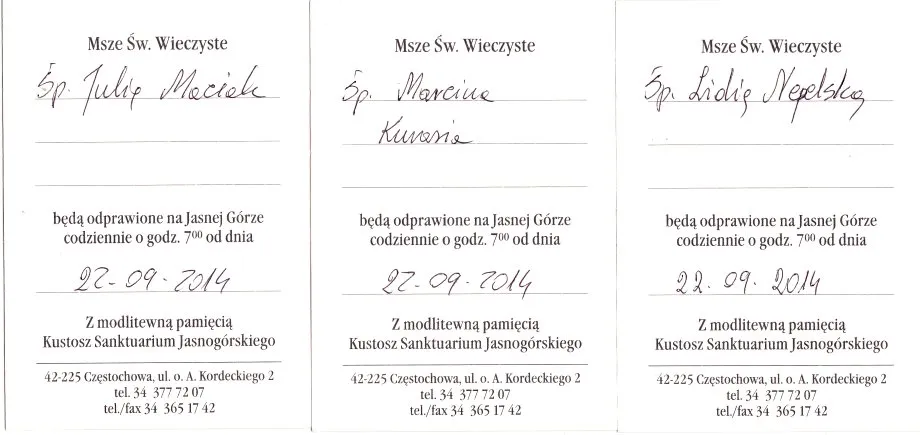 Msze Św. Wieczyste
Śp. Julię Maciak
będą odprawione na Jasnej Górze
codziennie o godz. 7⁰⁰ od dnia
22-09-2014
Z modlitewną pamięcią
Kustosz Sanktuarium Jasnogórskiego
42-225 Częstochowa, ul. o. A. Kordeckiego 2
tel. 34 377 72 07
tel./fax 34 365 17 42
Msze Św. Wieczyste
Śp. Marcina
Kurasia
będą odprawione na Jasnej Górze
codziennie o godz. 7⁰⁰ od dnia
22-09.2014
Z modlitewną pamięcią
Kustosz Sanktuarium Jasnogórskiego
42-225 Częstochowa, ul. o. A. Kordeckiego 2
tel. 34 377 72 07
tel./fax 34 365 17 42
Msze Św. Wieczyste
Śp. Lidię Nepelską
będą odprawione na Jasnej Górze
codziennie o godz. 7⁰⁰ od dnia
22. 09. 2014
Z modlitewną pamięcią
Kustosz Sanktuarium Jasnogórskiego
42-225 Częstochowa, ul. o. A. Kordeckiego 2
tel. 34 377 72 07
tel./fax 34 365 17 42